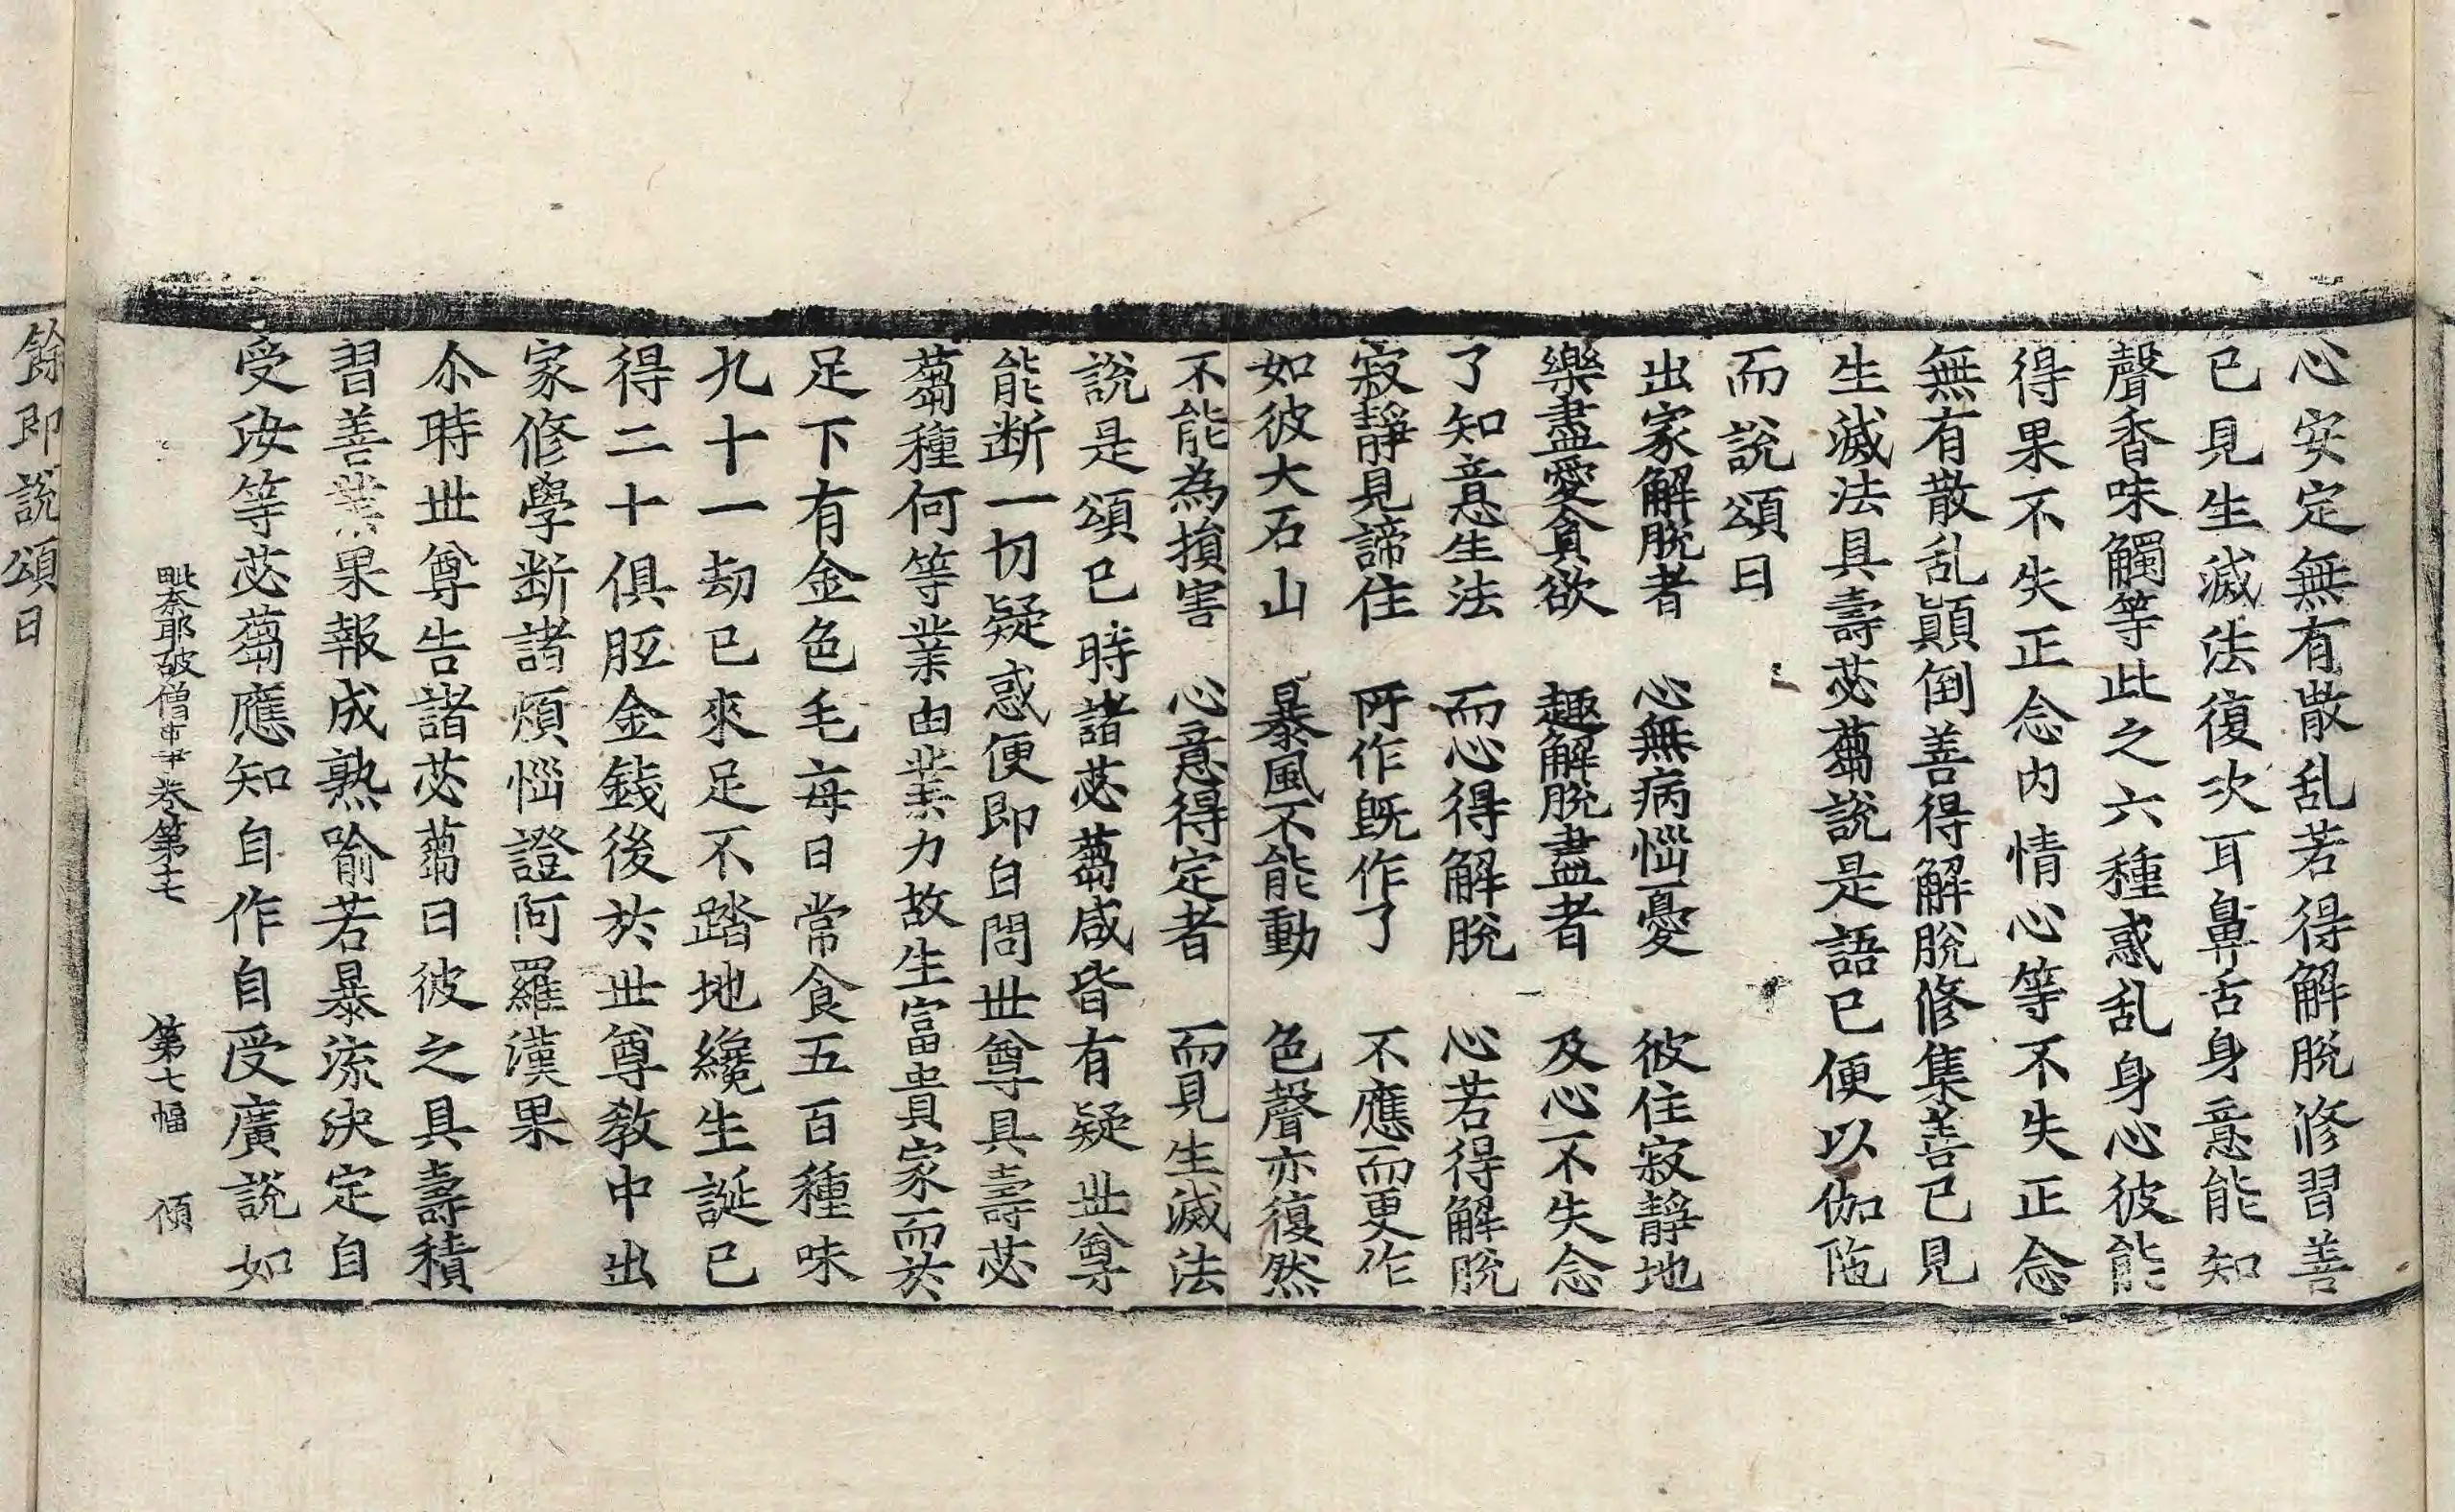 心安定無有散乱若得解脫修習善
已見生滅法復次耳鼻舌身意能知
聲香味觸等此之六種惑乱身心彼能
得果不失正念内情心等不失正念
無有散乱顛倒善得解脫修集善已見
生滅法具壽苾蒭說是語已便以伽陁
而說頌曰
出家解脫者　心無病惱憂　彼住寂靜地
樂盡愛貪欲　趣解脫盡者　及心不失念
了知意生法　而心得解脫　心若得解脫
寂靜見諦住　所作旣作了　不應而更作
如彼大石山　暴風不能動　色聲亦復然
不能為損害　心意得定者　而見生滅法
說是頌已時諸苾蒭咸皆有疑世尊
能断一切疑惑便即白問世尊具壽苾
蒭種何等業由業力故生富貴家而於
足下有金色毛每日常食五百種味
九十一劫已來足不踏地纔生誕已
得二十俱胝金錢後於世尊教中出
家修學断諸煩惱證阿羅漢果
尒時世尊告諸苾蒭曰彼之具壽積
習善業果報成熟喻若暴流決定自
受汝等苾蒭應知自作自受廣說如
毗奈耶破僧事卄卷第十七　第七幅　傾
餘即說頌曰